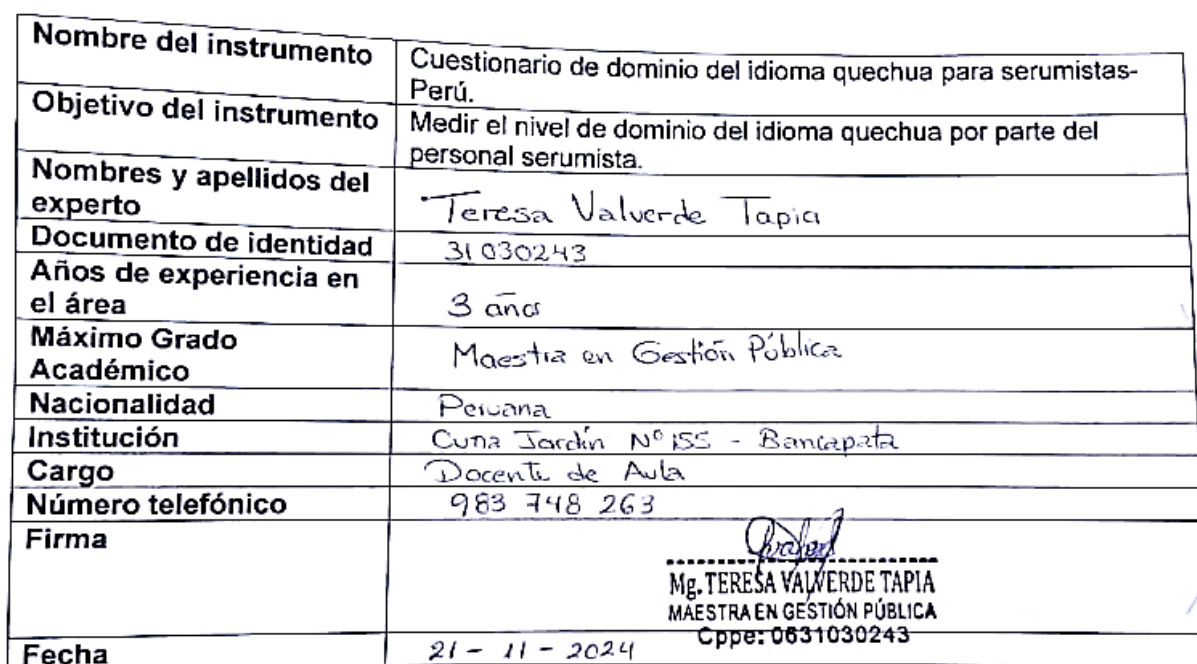 Nombre del instrumento
Cuestionario de dominio del idioma quechua para serumistas-
Perú.
Objetivo del instrumento
Medir el nivel de dominio del idioma quechua por parte del
personal serumista.
Nombres y apellidos del
experto
Teresa Valverde Tapia
Documento de identidad
31030243
Años de experiencia en
el área
3 años
Máximo Grado
Académico
Maestra en Gestión Pública
Nacionalidad
Peruana
Institución
Cuna Jardín Nº 155 - Bancapata
Cargo
Docente de Aula
Número telefónico
983 748 263
Firma
Mg. TERESA VALVERDE TAPIA
MAESTRA EN GESTIÓN PÚBLICA
Cppe: 0631030243
Fecha
21 - 11 - 2024